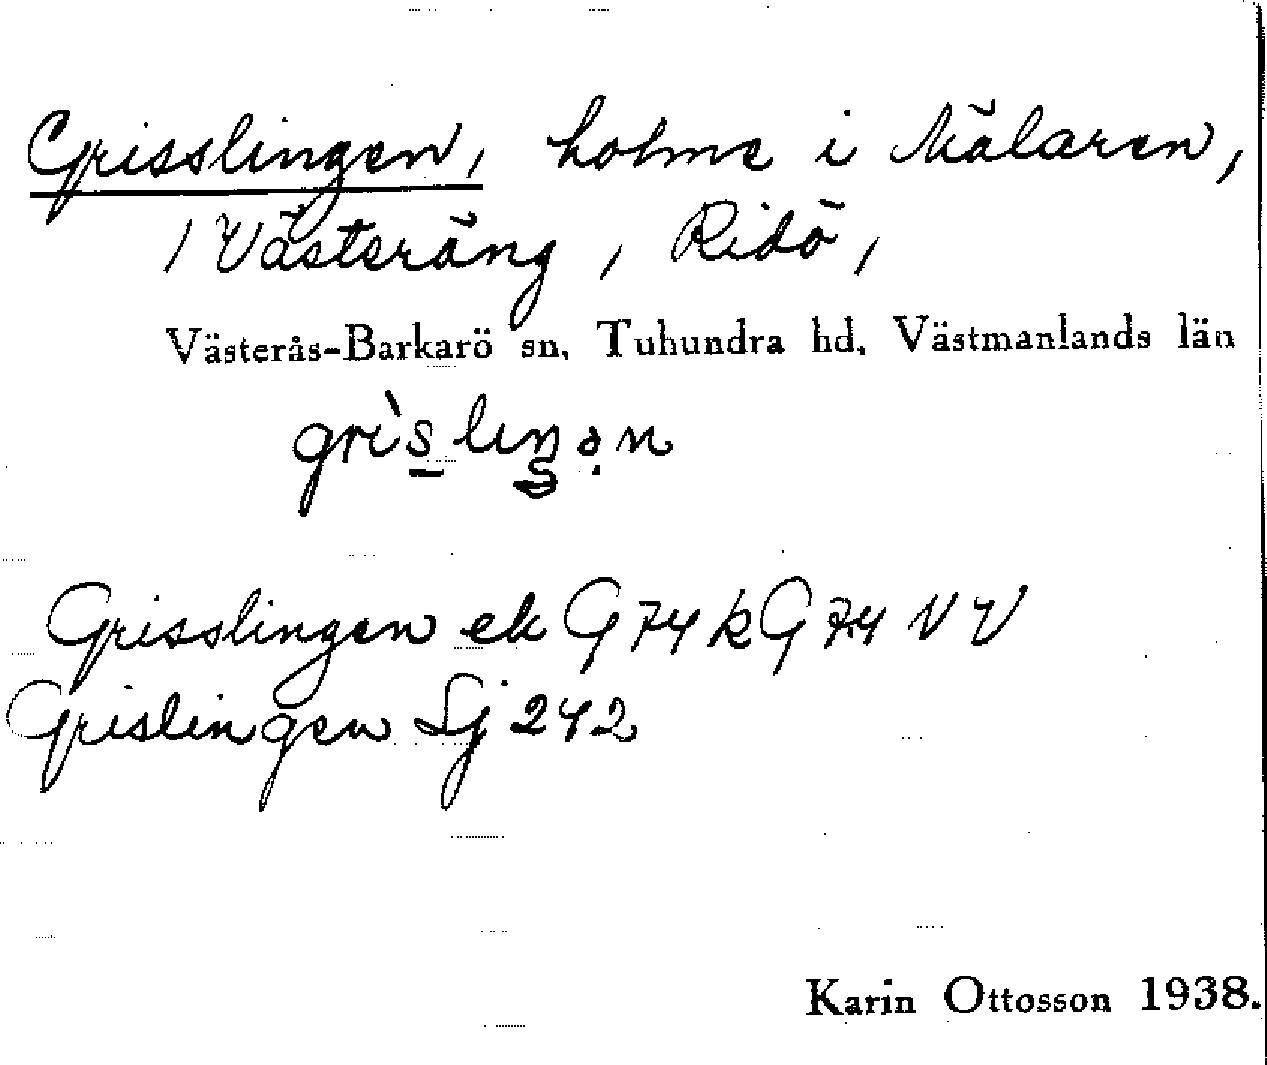 Grisslingen, holme i Mälaren,
/ Västeräng, Ridö,
Västerås-Barkarö sn, Tuhundra hd, Västmanlands län
Grisslingen ek G 74 k G 74 VV
Grislingen Sj 242
Karin Ottosson 1938.